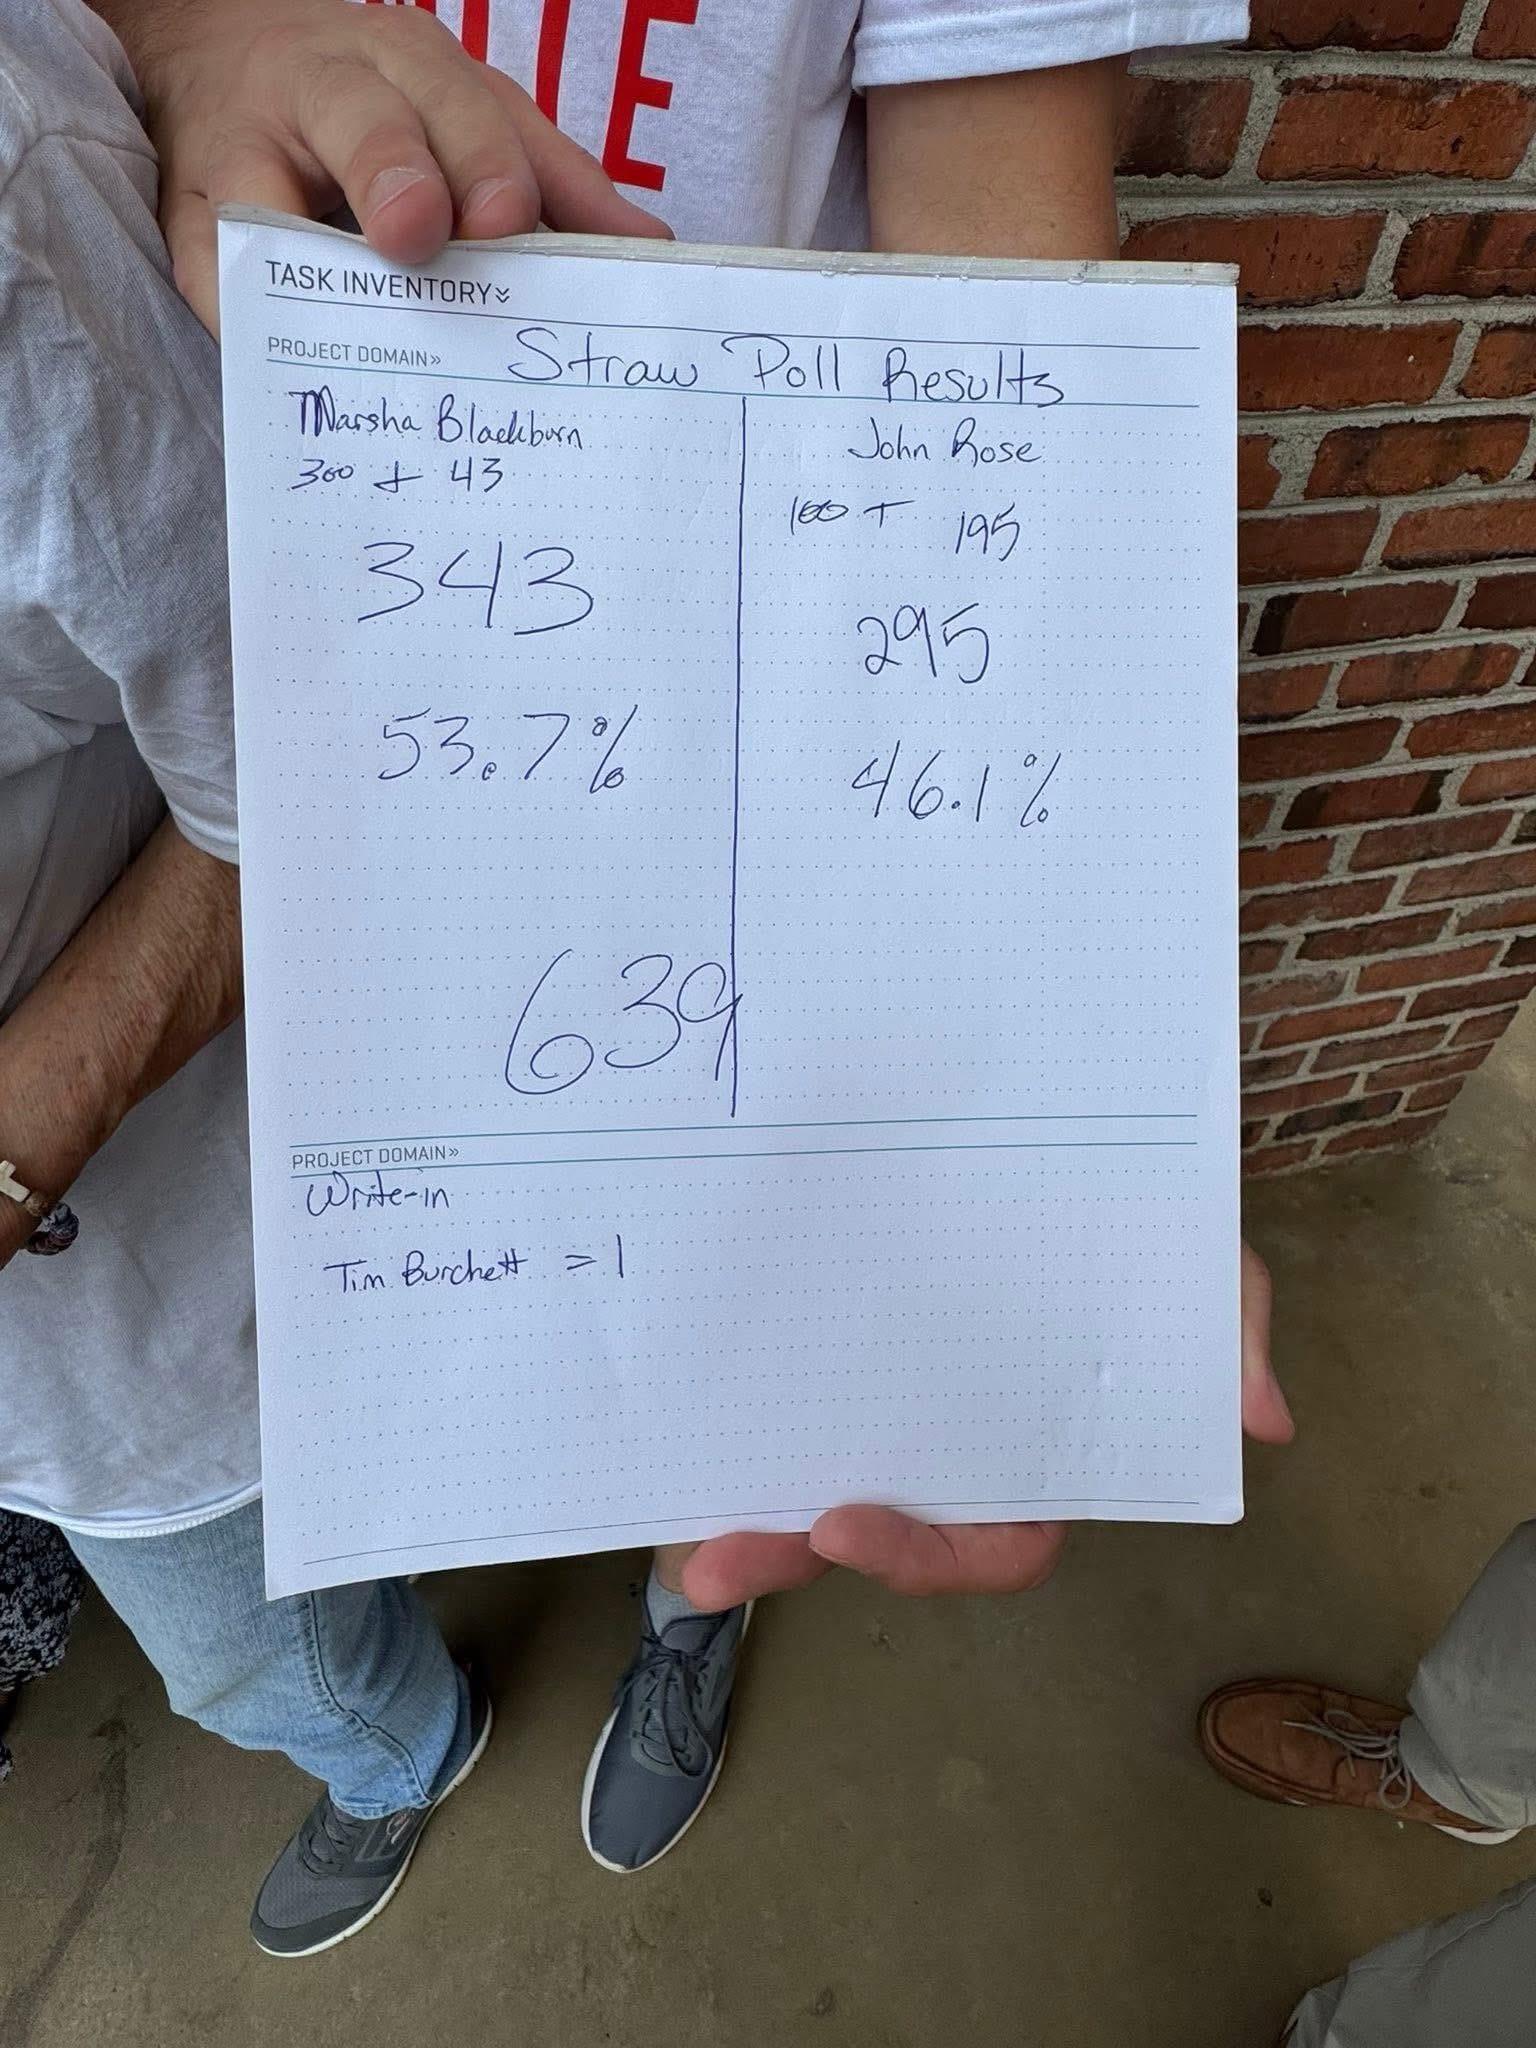 TASK INVENTORY
PROJECT DOMAIN»
Straw Poll Results
Marsha Blackburn
300 + 43
343
53.7%
John Rose
100 + 195
295
46.1%
639
PROJECT DOMAIN»
Write-in
Tim Burchett = 1